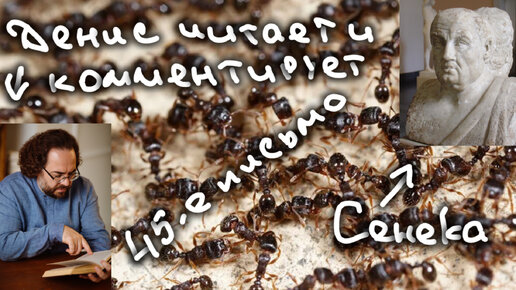 Денис читает и
комментирует
45-е письмо
Сенека